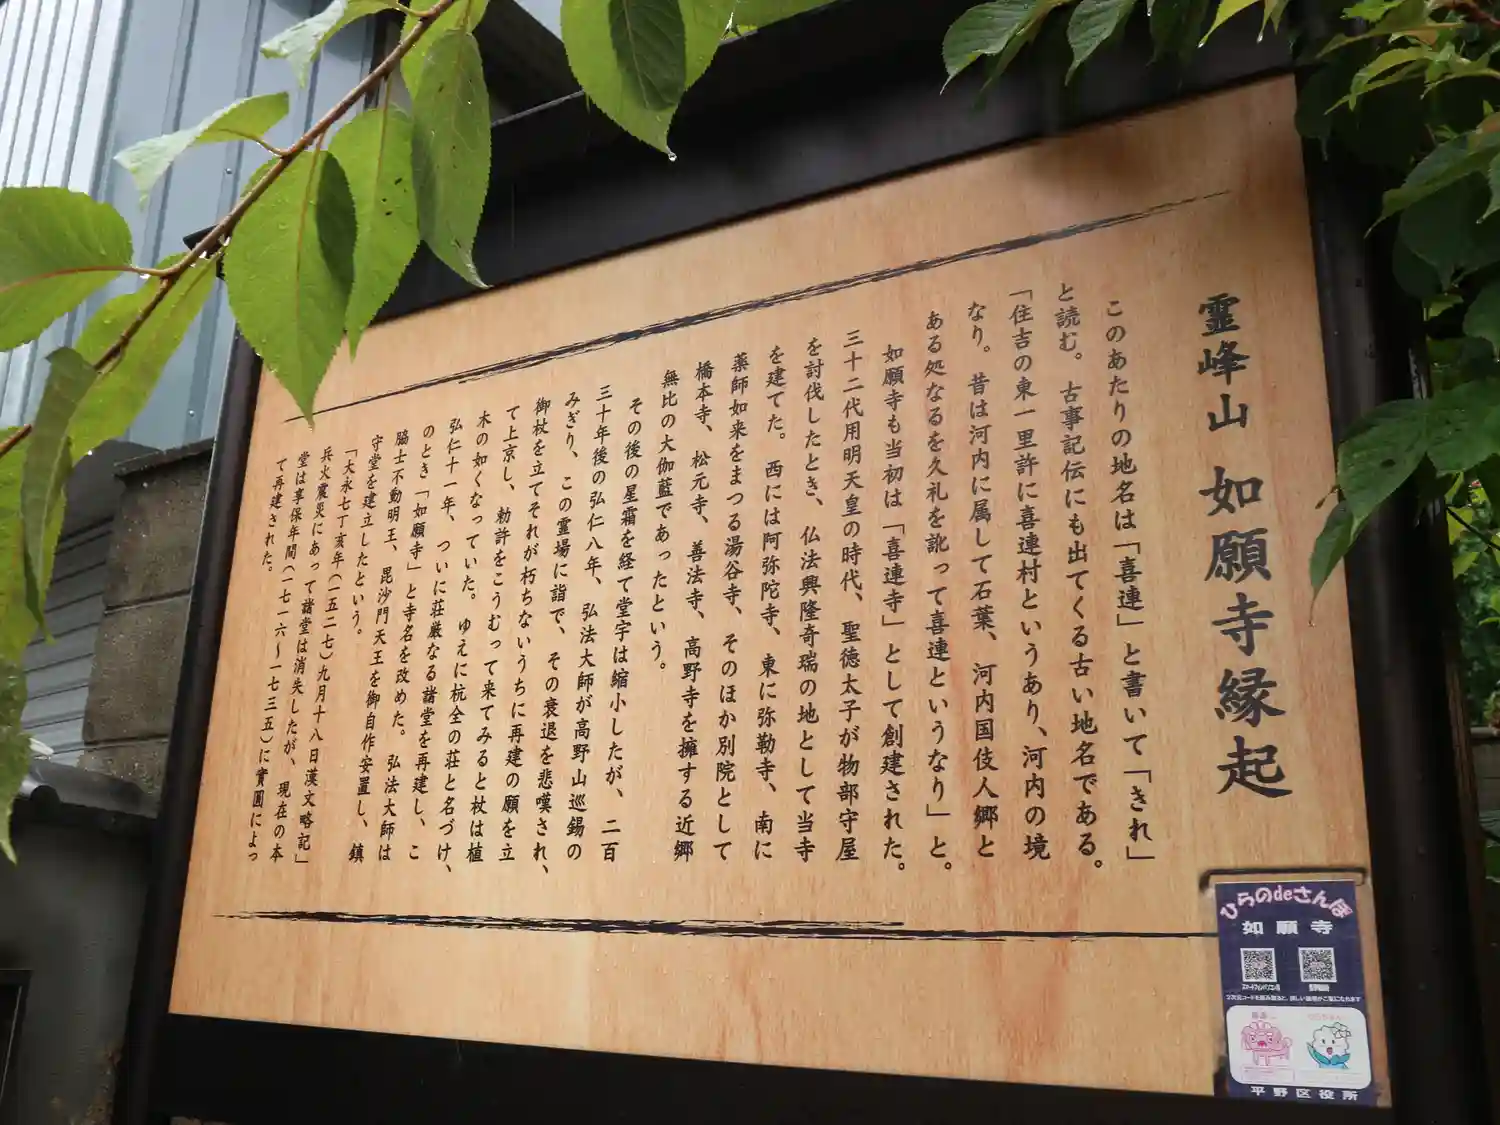 霊峰山 如願寺縁起
このあたりの地名は「喜連」と書いて「きれ」
と読む。古事記伝にも出てくる古い地名である。
「住吉の東一里許に喜連村というあり、河内の境
なり。昔は河内に属して石葉、河内国伎人郷と
ある処なるを久礼を訛って喜連というなり」と。
如願寺も当初は「喜連寺」として創建された。
三十二代用明天皇の時代、聖徳太子が物部守屋
を討伐したとき、仏法興隆奇瑞の地として当寺
を建てた。西には阿弥陀寺、東に弥勒寺、南に
薬師如来をまつる湯谷寺、そのほか別院として
橋本寺、松元寺、善法寺、高野寺を擁する近郷
無比の大伽藍であったという。
その後の星霜を経て堂宇は縮小したが、二百
三十年後の弘仁八年、弘法大師が高野山巡錫の
みぎり、この霊場に詣で、その衰退を悲嘆され、
御杖を立てそれが朽ちないうちに再建の願を立
て上京し、勅許をこうむって来てみると杖は植
木の如くなっていた。ゆえに杭全の荘と名づけ、
弘仁十一年、ついに荘厳なる諸堂を再建し、こ
のとき「如願寺」と寺名を改めた。弘法大師は
脇士不動明王、毘沙門天王を御自作安置し、鎮
守堂を建立したという。
「大永七丁亥年(一五二七)九月十八日漢文略記」
兵火震災にあって諸堂は消失したが、現在の本
堂は享保年間(一七一六～一七三五)に實圓によっ
て再建された。
ひらのdeさんぽ
如願寺
2次元コードを読み取ると、詳しい説明がご覧になれます
平野区役所